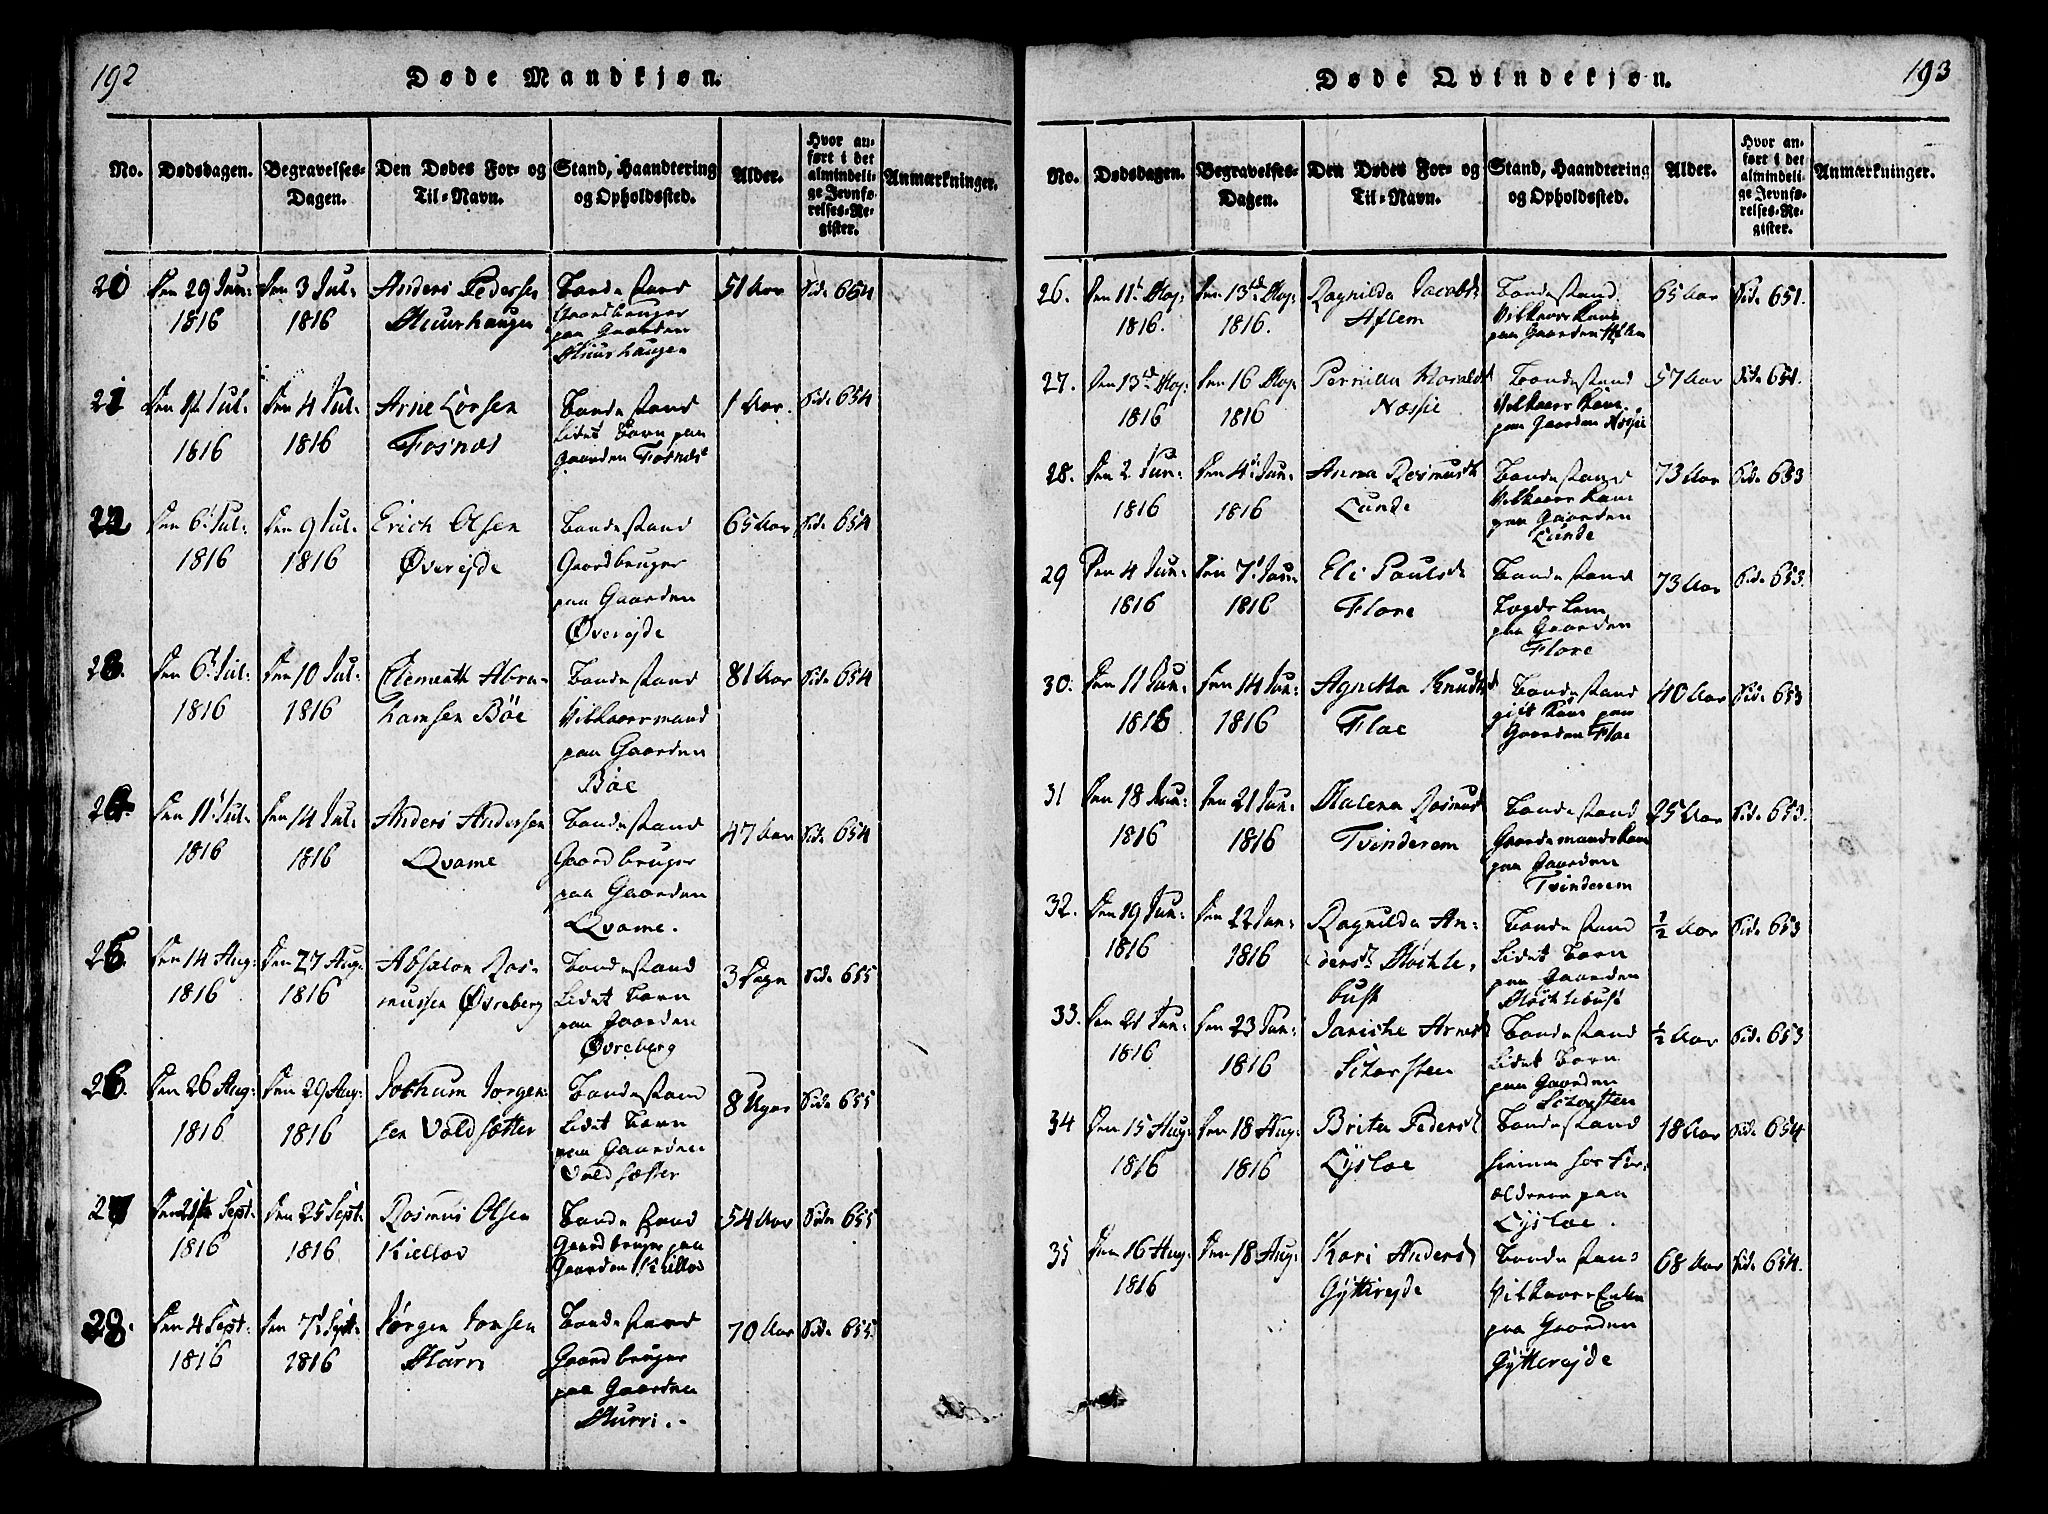 192
Døde Mandkjøn.
No.
Dødsdagen.
Begravelses-
Dagen.
Den Dødes For- og
Til-Navn.
Stand, Haandtering
og Opholdssted.
Alder.
Hvor an-
ført i det
almindeli-
ge Jevnfø-
relses-Re-
gister.
Anmærkninger.
20
Den 29 Jun:
1816
Den 3 Jul:
1816
Anders Pedersen
Bondestand
Gaardbruger
paa Gaarden
51 Aar
Side 654
21
Jul:
1816
Den 4 Jul:
1816
Arne
Fosnæs
Bondestand
Lidet Barn paa
Gaarden Fosnæs
1 Aar.
Side 654
22
Den 6 Jul:
1816
Den 9 Jul:
1816
Erich Olsen
Øverejde
Bondestand
Gaardbruger
paa Gaarden
Øverejde
65 Aar
Side 654
Den 6 Jul:
1816
Den 10 Jul:
1816
Clementh Abra-
hamsen Böe
Bondestand
Vilkaarmand
paa Gaarden
Böe
81 Aar
Side 654
Den 11 Jul:
1816
Den 14 Jul:
1816
Anders Andersen
Qvame
Bondestand
Gaardbruger
paa Gaarden
Qvame.
47 Aar
Side 654
Den 14 Aug:
1816
Den 27 Aug:
1816
Absalon Ras-
mussen Øvreberg
Bondestand
Lidet Barn
paa Gaarden
Øvreberg
3 Dage
Side 655
26.
Den 26 Aug:
1816
Den 29 Aug:
1816
Jochum Jørgen-
sen Voldsætter
Bondestand
Lidet Barn
paa Gaarden
Voldsætter
8 Uger
Side 655
27
Sept:
1816
Den 25 Sept:
1816
Rasmus Olsen
Kielloe
Bondestand
Gaardbruger paa
Gaarden Kielloe
54 Aar
Side 655
28.
Den 4 Sept:
1816
Den 7 Sept:
1816
Jørgen Jonsen
Bondestand
Gaardbruger
paa Gaarden
70 Aar
Side 655
193
Døde Qvindekjøn.
No.
Dødsdagen.
Begravelses-
Dagen.
Den Dødes For- og
Til-Navn.
Stand, Haandtering
og Opholdssted.
Alder.
Hvor an-
ført i det
almindeli-
ge Jevnfø-
relses-Re-
gister.
Anmærkninger.
26.
Den 11 Maj:
1816.
Den 13 Maj:
1816.
Ragnilda Jacobsd:
Aflem
Bondestand
Vilkaars Kone
paa Gaarden Aflem
65 Aar
Side 651.
27.
Den 13 Maj:
1816
Den 16 Maj:
1816
Pernilla
Næsie
Bondestand
Vilkaars Kone
paa Gaarden Næsie
57 Aar
Side 651.
28.
Den 2 Jun:
1816
Den 4 Jun:
1816
Anna Rasmusd
Lunde
Bondestand
Vilkaars Kone
paa Gaarden
Lunde
73 Aar
Side 653
29
Den 4 Jun:
1816
Den 7 Jun:
1816
Eli Paulsd
Flore
Bondestand
Lem
paa Gaarden
Flore
73 Aar
Side 653.
30.
Den 11 Jun:
1816
Den 14 Jun:
1816
Agnetha Knudsd
Floe
Bondestand
gift Kone paa
Gaarden Floe
40 Aar
Side 653
31
Den 18 Jun:
1816
Den 21 Jun:
1816
Malena Rasmusd
Tvinderem
Bondestand
Gaardmands Kone
paa Gaarden
Tvinderem
25 Aar
Side 653.
32.
Den 19 Jun:
1816
Den 22 Jun:
1816
Ragnilda An-
dersd
bust
Bondestand
Lidet Barn
paa Gaarden
½ Aar
Side 653
33.
Den 21 Jun:
1816
Den 23 Jun:
1816
Janicke Arnesd
Storsten
Bondestand
Lidet Barn
paa Gaarden
Storsten
½ Aar
Side 653
34
Den 15 Aug:
1816
Den 18 Aug:
1816
Brita Pedersd
Lysloe
Bondestand
hiemme hos For-
ældrene paa
Lysloe.
18 Aar
Side 654
35
Den 16 Aug:
1816
Den 18 Aug:
Kari Andersd
Gytterejde
Bondestan-
Vilkaars Enke
paa Gaarden
Gytterejde
68 Aar
Side 654.